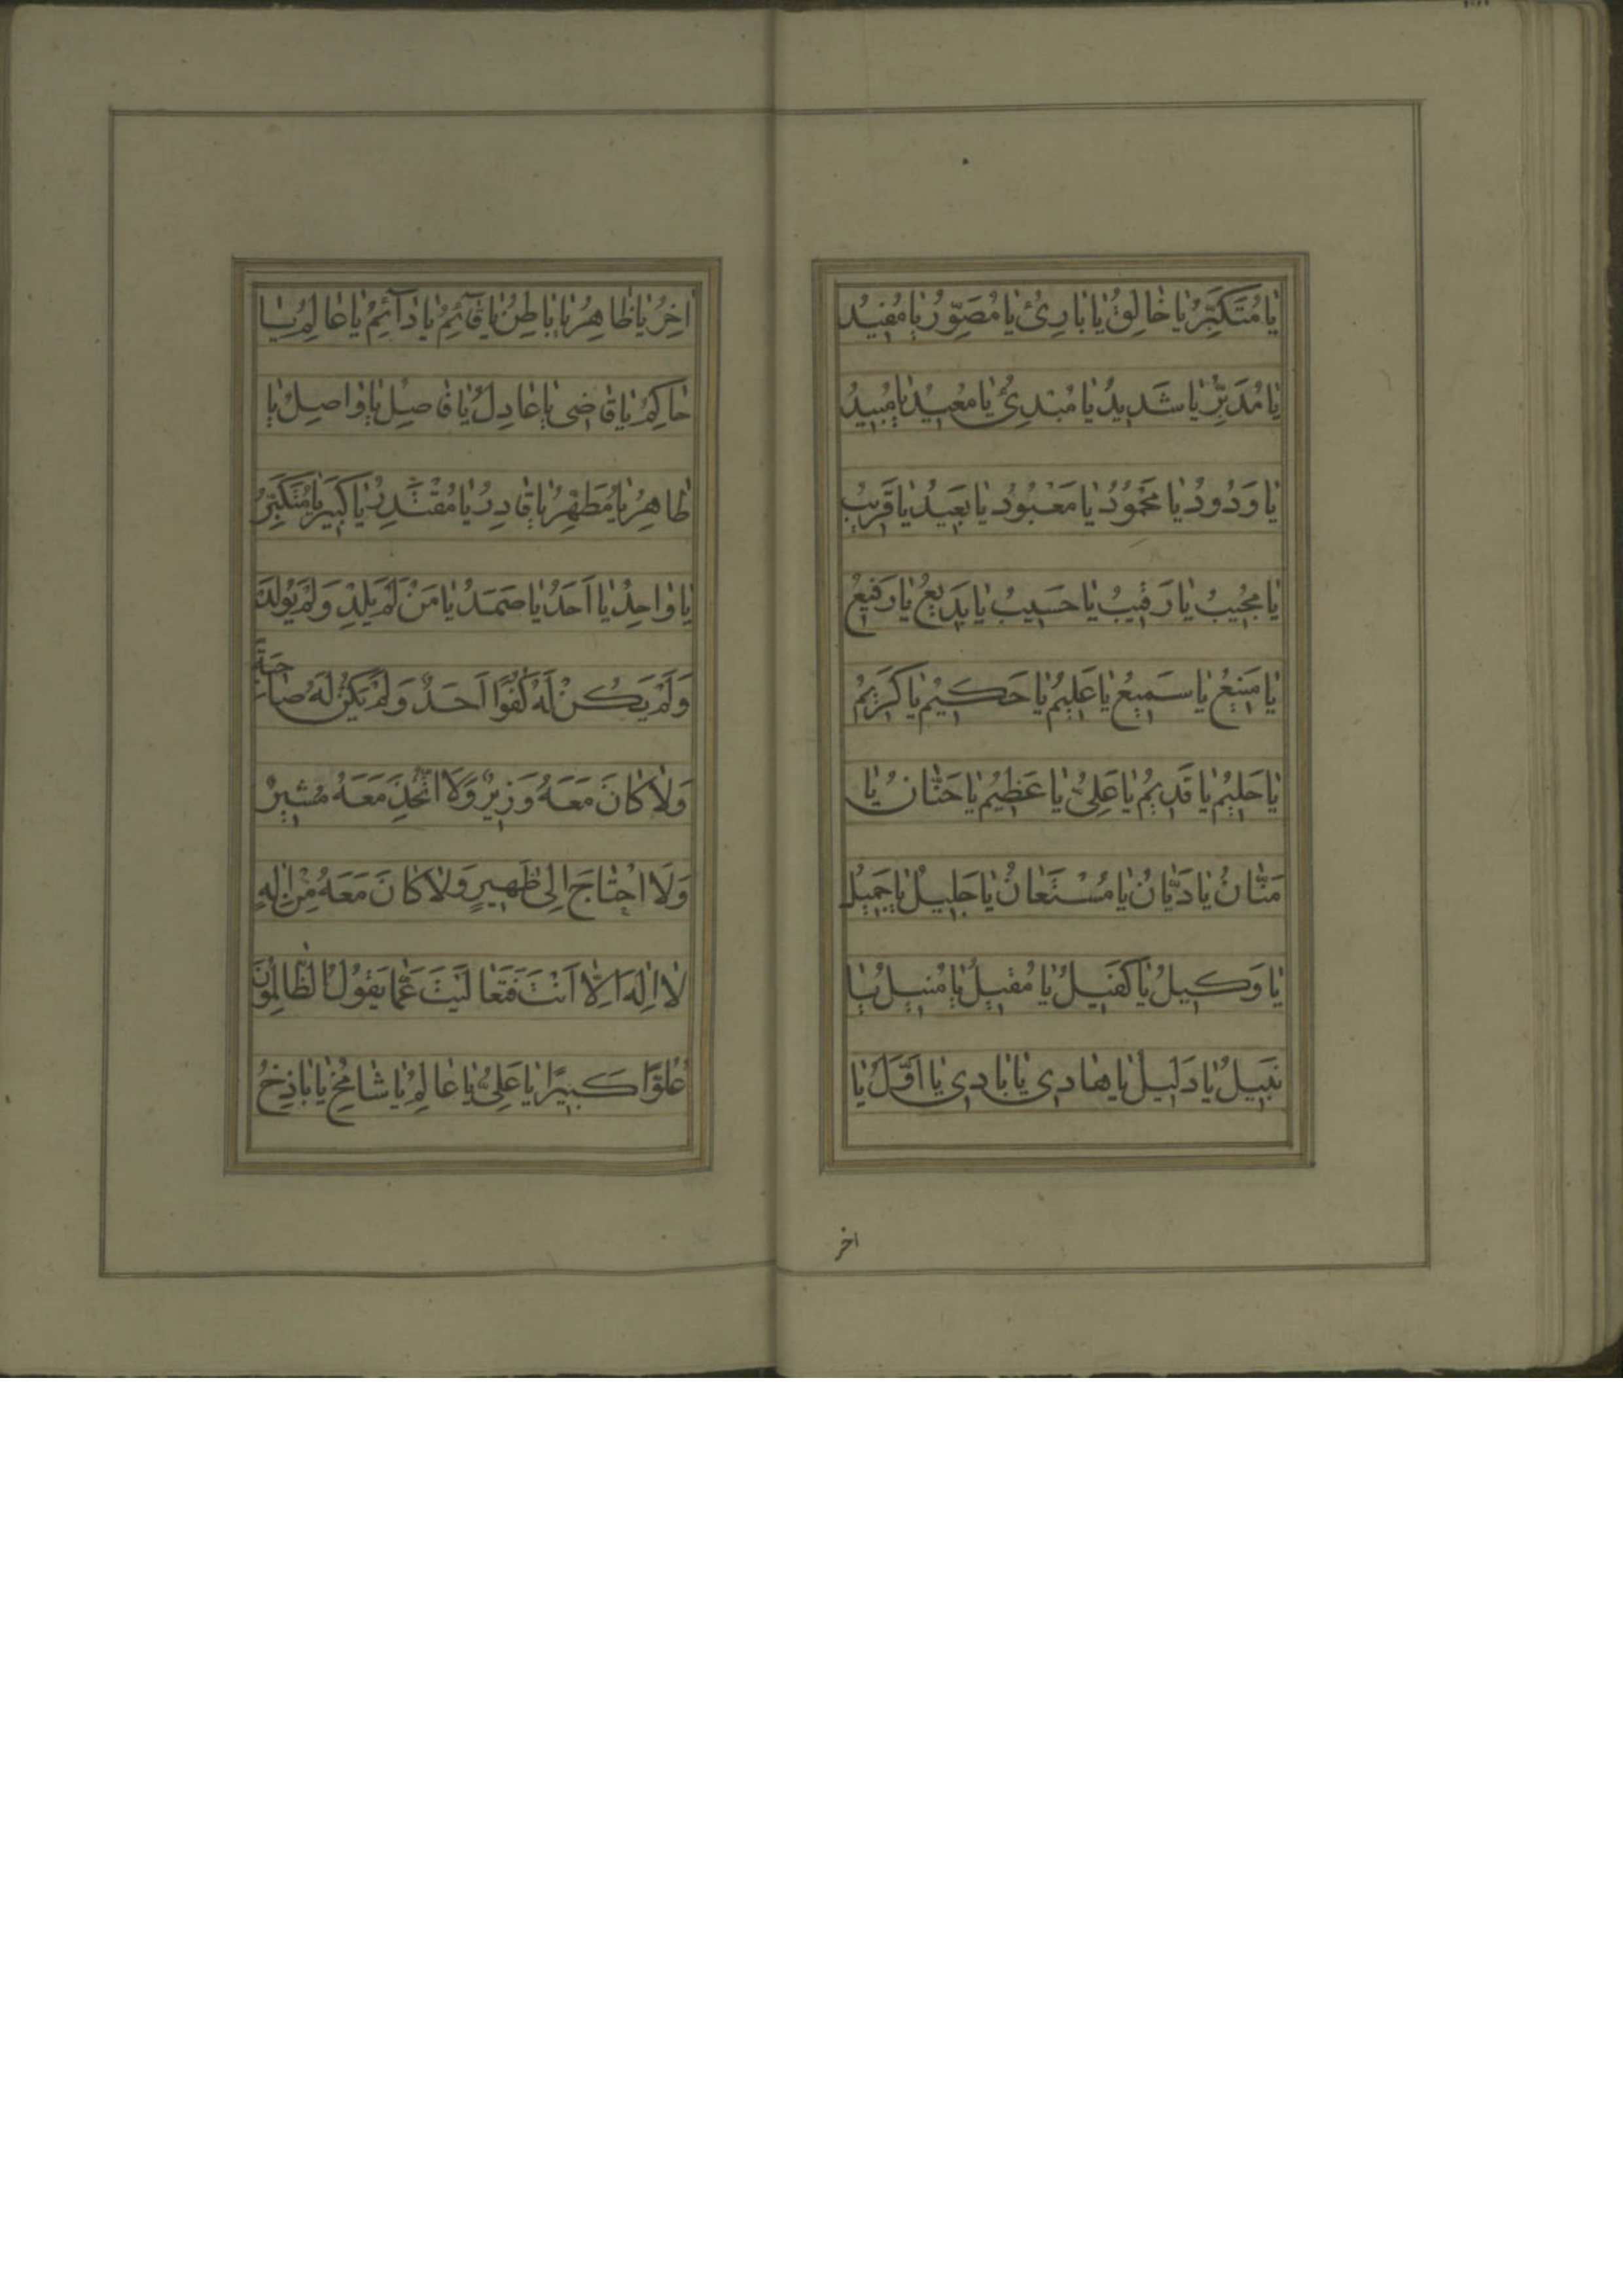 يَا مُتَكَبِّرُ يَا خَالِقُ يَا بَارِئُ يَا مُصَوِّرُ يَا مُفِيدُ
يَا مُدَبِّرُ يَا شَدِيدُ يَا مُبْدِئُ يَا مُعِيدُ يَا مُبِيدُ
يَا وَدُودُ يَا مَحْمُودُ يَا مَعْبُودُ يَا بَعِيدُ يَا قَرِيبُ
يَا مُجِيبُ يَا رَقِيبُ يَا حَسِيبُ يَا بَدِيعُ يَا رَفِيعُ
يَا مَنِيعُ يَا سَمِيعُ يَا عَلِيمُ يَا حَكِيمُ يَا كَرِيمُ
يَا حَلِيمُ يَا قَدِيمُ يَا عَلِىُّ يَا عَظِيمُ يَا حَنَّانُ يَا
مَنَّانُ يَا دَيَّانُ يَا مُسْتَعَانُ يَا جَلِيلُ يَا جَمِيلُ
يَا وَكِيلُ يَا كَفِيلُ يَا مُقِيلُ يَا مُنِيلُ يَا
نَبِيلُ يَا دَلِيلُ يَا هَادِى يَا بَادِى يَا اَوَّلُ يَا
اخر
اٰخِرُ يَا ظَاهِرُ يَا بَاطِنُ يَا قَآئِمُ يَا دَآئِمُ يَا عَالِمُ يَا
حَاكِمُ يَا قَاضِى يَا عَادِلُ يَا فَاصِلُ يَا وَاصِلُ يَا
طَاهِرُ يَا مُطَهِّرُ يَا قَادِرُ يَا مُقْتَدِرُ يَا كَبِيرُ يَا مُتَكَبِّرُ
يَا وَاحِدُ يَا اَحَدُ يَا صَمَدُ يَا مَنْ لَمْ يَلِدْ وَلَمْ يُولَدْ
وَلَمْ يَكُنْ لَهُ كُفُوًا اَحَدٌ وَلَمْ يَكُنْ لَهُ صَاحِبَةٌ
وَلَا كَانَ مَعَهُ وَزِيرٌ وَلَا اتَّخَذَ مَعَهُ مُشِيرٌ
وَلَا احْتَاجَ اِلٰى ظَهِيرٍ وَلَا كَانَ مَعَهُ مِنْ اِلٰهٍ
لَا اِلٰهَ اِلَّا اَنْتَ فَتَعَالَيْتَ عَمَّا يَقُولُ الظَّالِمُونَ
عُلُوًّا كَبِيرًا يَا عَلِىُّ يَا عَالِمُ يَا شَامِخُ يَا بَاذِخُ